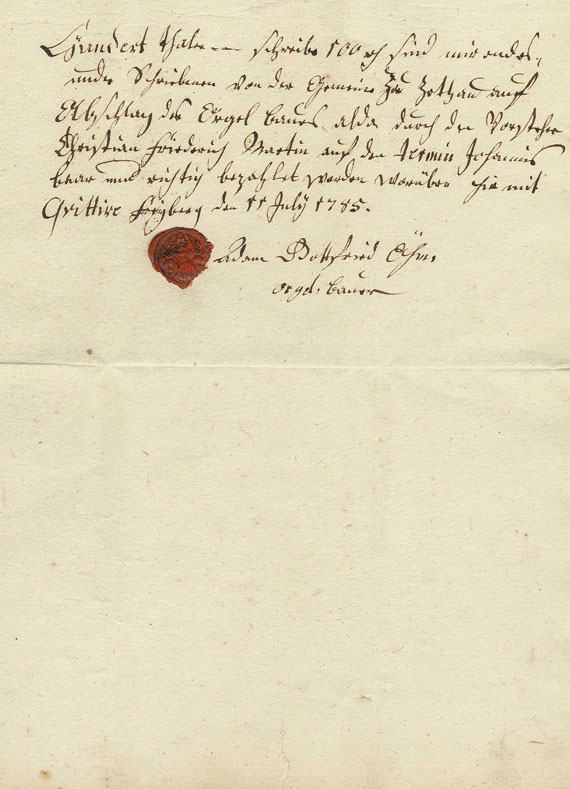 Hundert Thaler — schreibe 100 rh sind mir endes,
under Schriebenen von der Gemeine Zu Zethau auf
Abschlag des Orgel baues alda durch den Vorstehe
Christian Friederich Martin auf den termin Johannis
baar und richtig bezahlet worden worüber hier mit
Qvittire Freyberg den 11 July 1785.
Adam Gottfried Öhm,
orgel. bauer